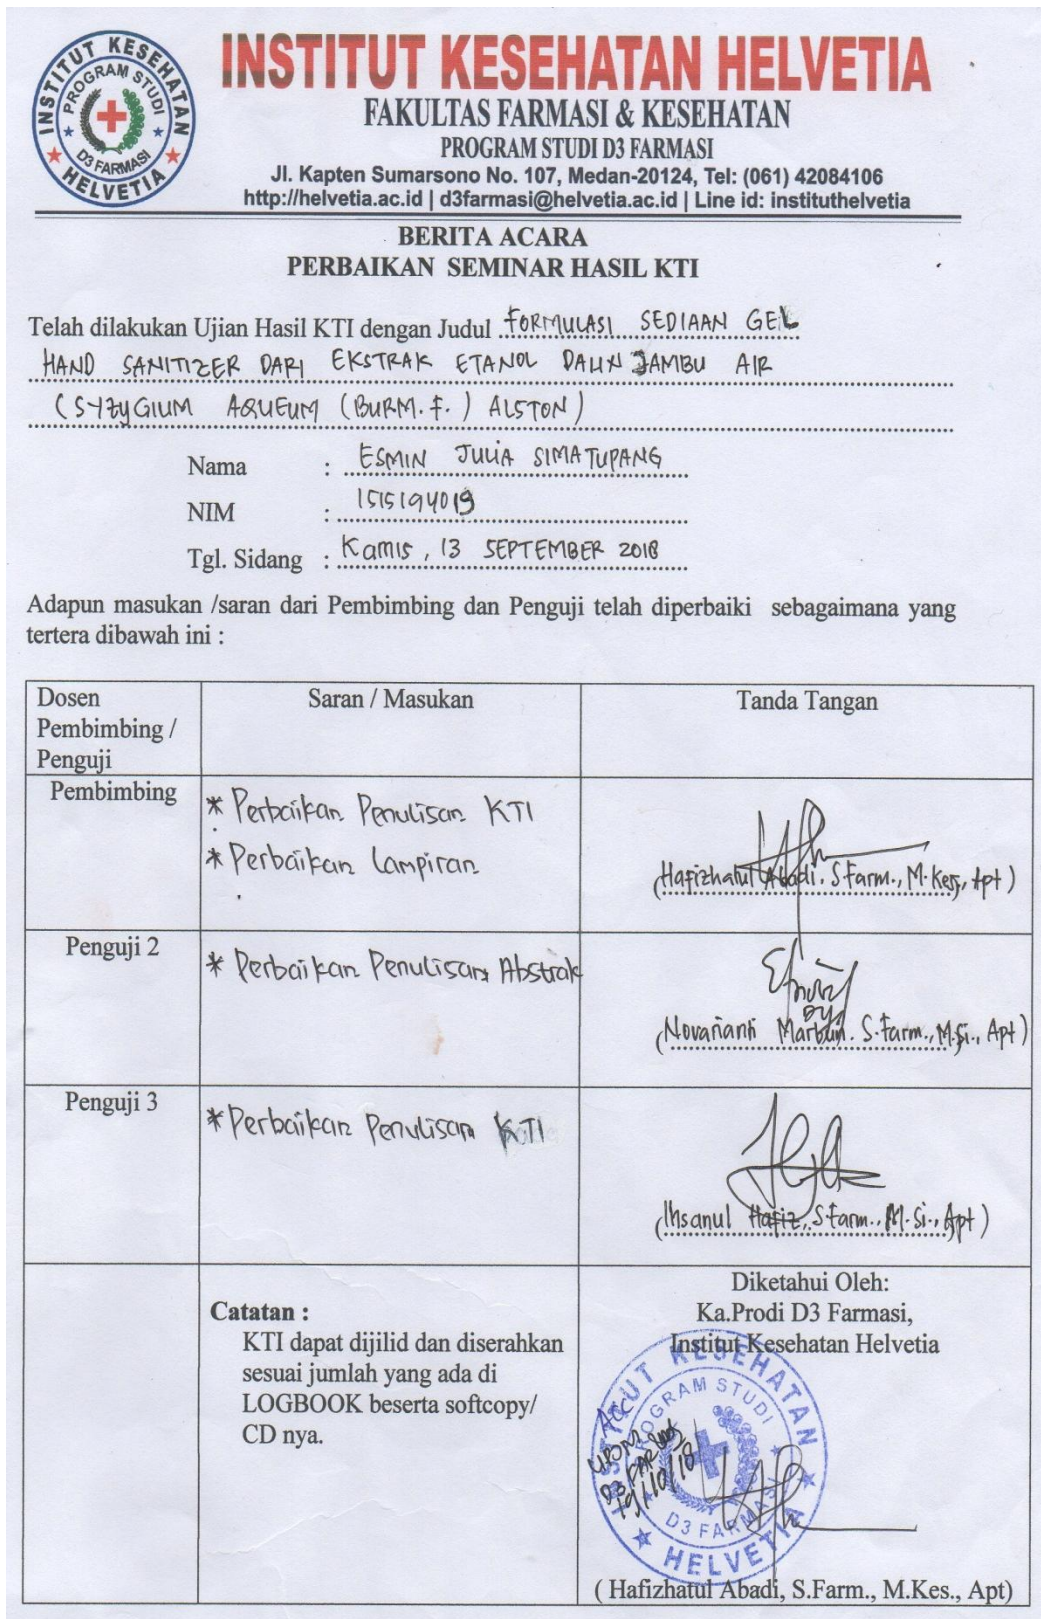 INSTITUT KESEHATAN HELVETIA
FAKULTAS FARMASI & KESEHATAN
PROGRAM STUDI D3 FARMASI
Jl. Kapten Sumarsono No. 107, Medan-20124, Tel: (061) 42084106
http://helvetia.ac.id | d3farmasi@helvetia.ac.id | Line id: instituthelvetia
INSTITUT KESEHATAN HELVETIA
PROGRAM STUDI D3 FARMASI
BERITA ACARA
PERBAIKAN SEMINAR HASIL KTI
Telah dilakukan Ujian Hasil KTI dengan Judul FORMULASI SEDIAAN GEL
HAND SANITIZER DARI EKSTRAK ETANOL DAUN JAMBU AIR
(SYZYGIUM AQUEUM (BURM. F.) ALSTON)
Nama : ESMIN JULIA SIMATUPANG
NIM : 1515194019
Tgl. Sidang : Kamis, 13 SEPTEMBER 2018
Adapun masukan /saran dari Pembimbing dan Penguji telah diperbaiki sebagaimana yang
tertera dibawah ini :
Dosen
Pembimbing /
Penguji
Saran / Masukan
Tanda Tangan
Pembimbing
* Perbaikan Penulisan KTI
* Perbaikan Lampiran
(Hafizhatul Abadi. S.Farm., M.Kes., Apt)
Penguji 2
* Perbaikan Penulisan Abstrak
(Novarianti Marbun. S.Farm., M.Si., Apt)
Penguji 3
* Perbaikan Penulisan KTI
(Ihsanul Hafiz, S.Farm., M.Si., Apt)
Catatan :
KTI dapat dijilid dan diserahkan
sesuai jumlah yang ada di
LOGBOOK beserta softcopy/
CD nya.
Diketahui Oleh:
Ka.Prodi D3 Farmasi,
Institut Kesehatan Helvetia
INSTITUT KESEHATAN HELVETIA
PROGRAM STUDI D3 FARMASI
ACC
19/10/18
( Hafizhatul Abadi, S.Farm., M.Kes., Apt)